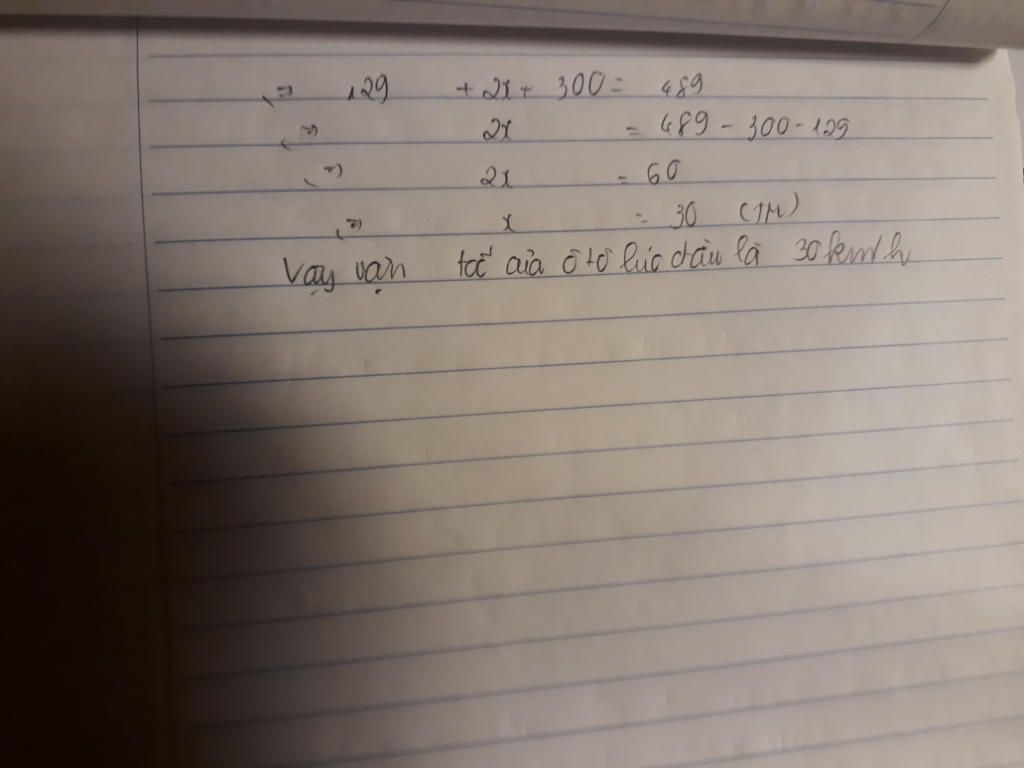 <=> 129 + 2x + 300 = 489
<=> 2x = 489 - 300 - 129
<=> 2x = 60
<=> x = 30 (TM)
Vậy vận tốc của ô tô lúc đầu là 30km/h